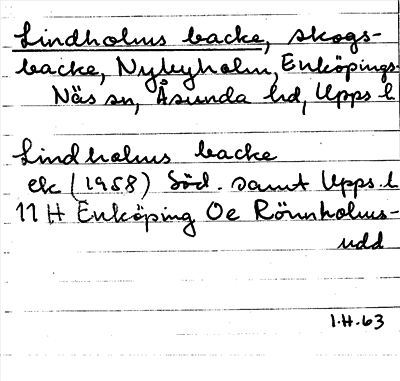 Lindholms backe, skogs-
backe, Nybyholm, Enköpings-
Näs sn, Åsunda hd, Upps l.
Lindholms backe
ek (1958) Söd. samt Upps. l.
11 H Enköping Oe Rönnholms-
udd
1.H.63